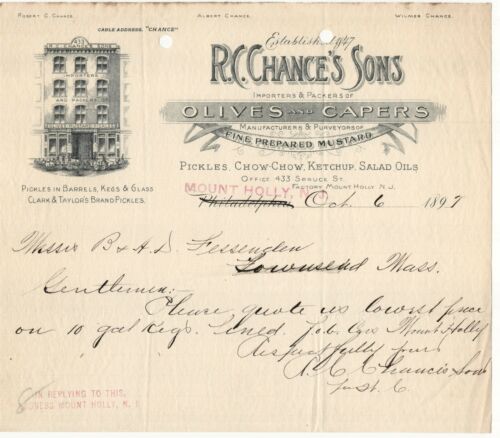 Robert C. Chance. Albert Chance. Wilmer Chance.
CABLE ADDRESS, "CHANCE"
Established 1847
R.C. CHANCE'S SONS
IMPORTERS & PACKERS OF
OLIVES AND CAPERS
MANUFACTURERS & PURVEYORS OF
FINE PREPARED MUSTARD
PICKLES, CHOW-CHOW, KETCHUP, SALAD OILS
OFFICE 433 SPRUCE ST.
FACTORY MOUNT HOLLY N.J.
433
R.C. CHANCE'S SONS
IMPORTERS
AND PACKERS
OLIVES MUSTARD PICKLES
PICKLES IN BARRELS, KEGS & GLASS
CLARK & TAYLOR'S BRAND PICKLES.
MOUNT HOLLY, N.
Philadelphia Oct. 6 1897
Messrs B & A. D. Fessenden
Townsend Mass.
Gentlemen:-
Please quote us lowest price
on 10 gal Kegs. Lined f.o.b. Cars Mount Holly
Respectfully yours
R. C. Chance's Sons
IN REPLYING TO THIS,
ADDRESS MOUNT HOLLY, N. J.